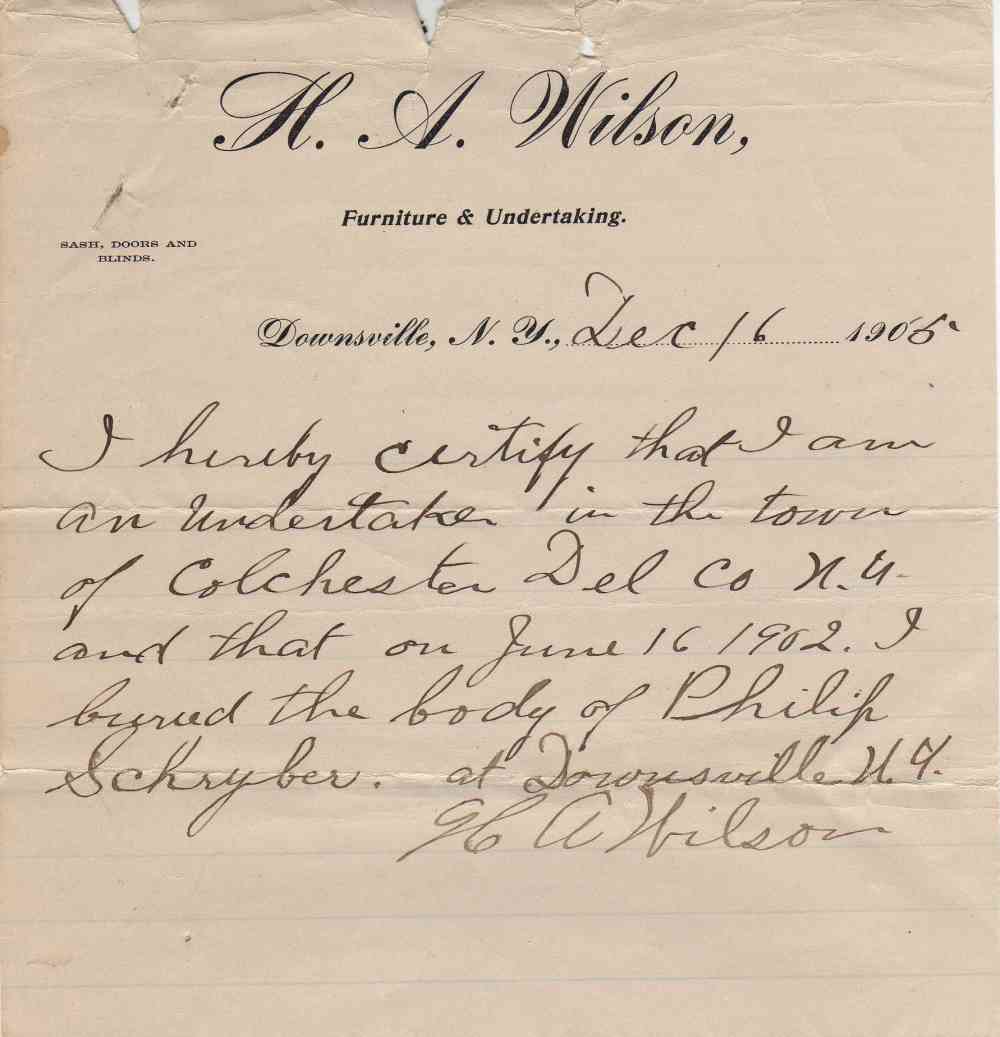 H. A. Wilson,
Furniture & Undertaking.
SASH, DOORS AND
BLINDS.
Downsville, N. Y., Dec 16 1905
I hereby certify that I am
an undertaker in the town
of Colchester Del Co N.Y.
and that on June 16 1902. I
buried the body of Philip
Schryber. at Downsville N.Y.
H A Wilson